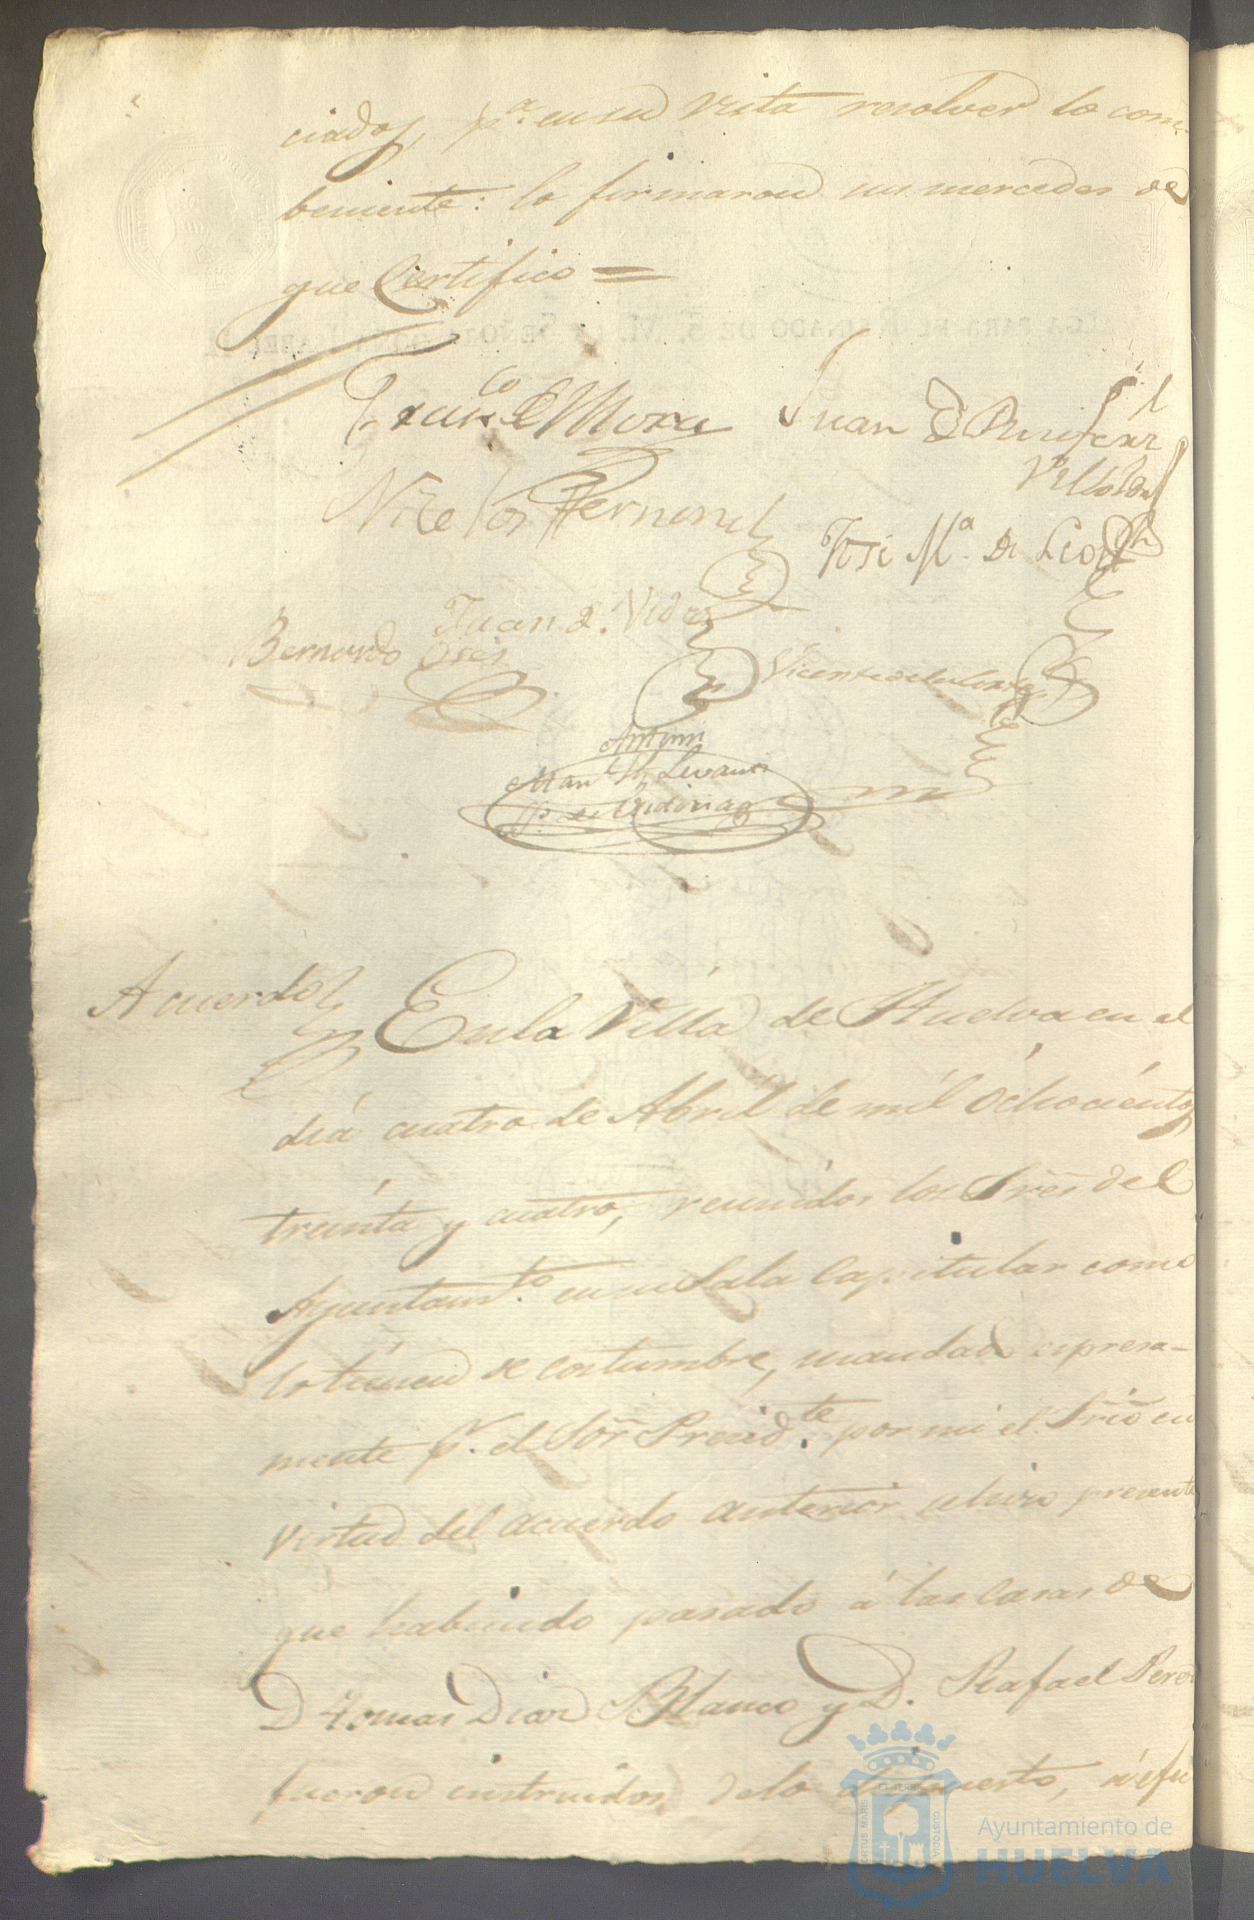 ciados, pª en su vista resolver lo com-
beniente: lo firmaron sus mercedes de
que Certifico =
Franco. Mora Juan
Nicolas Hernand
José Mª. de Leon
Juan Vides
Bernardo
Vicente de la Corte
Antoni
Acuerdo En la Villa de Huelva en el
día cuatro de Abril de mil Ochocientos
treinta y cuatro, reunidos los Sres del
Ayuntamto. en su Sala Capitular como
lo tienen de costumbre, mandado espresa-
mente pr. el Sor Presidte. por mi el Srio en
virtud del acuerdo anterior se hizo presente
que habiendo pasado á las Casas de
D Tomas Diaz Blanco y D. Rafael Perez
fueron instruidos de lo dispuesto, á efec
Ayuntamiento de
HUELVA